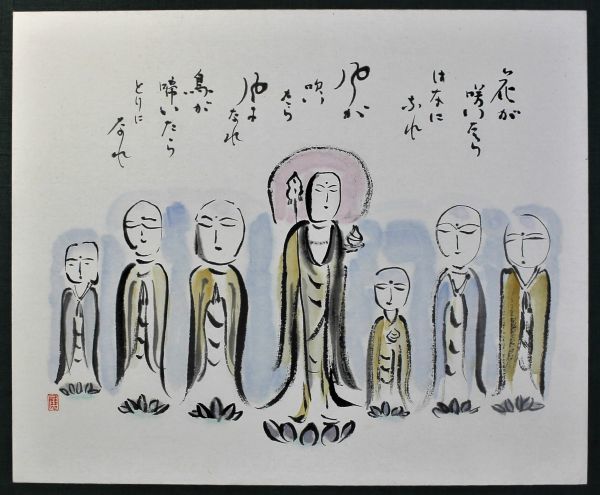 花が
咲いたら
はなに
なれ
風が
吹い
たら
風に
なれ
鳥が
啼いたら
とりに
なれ